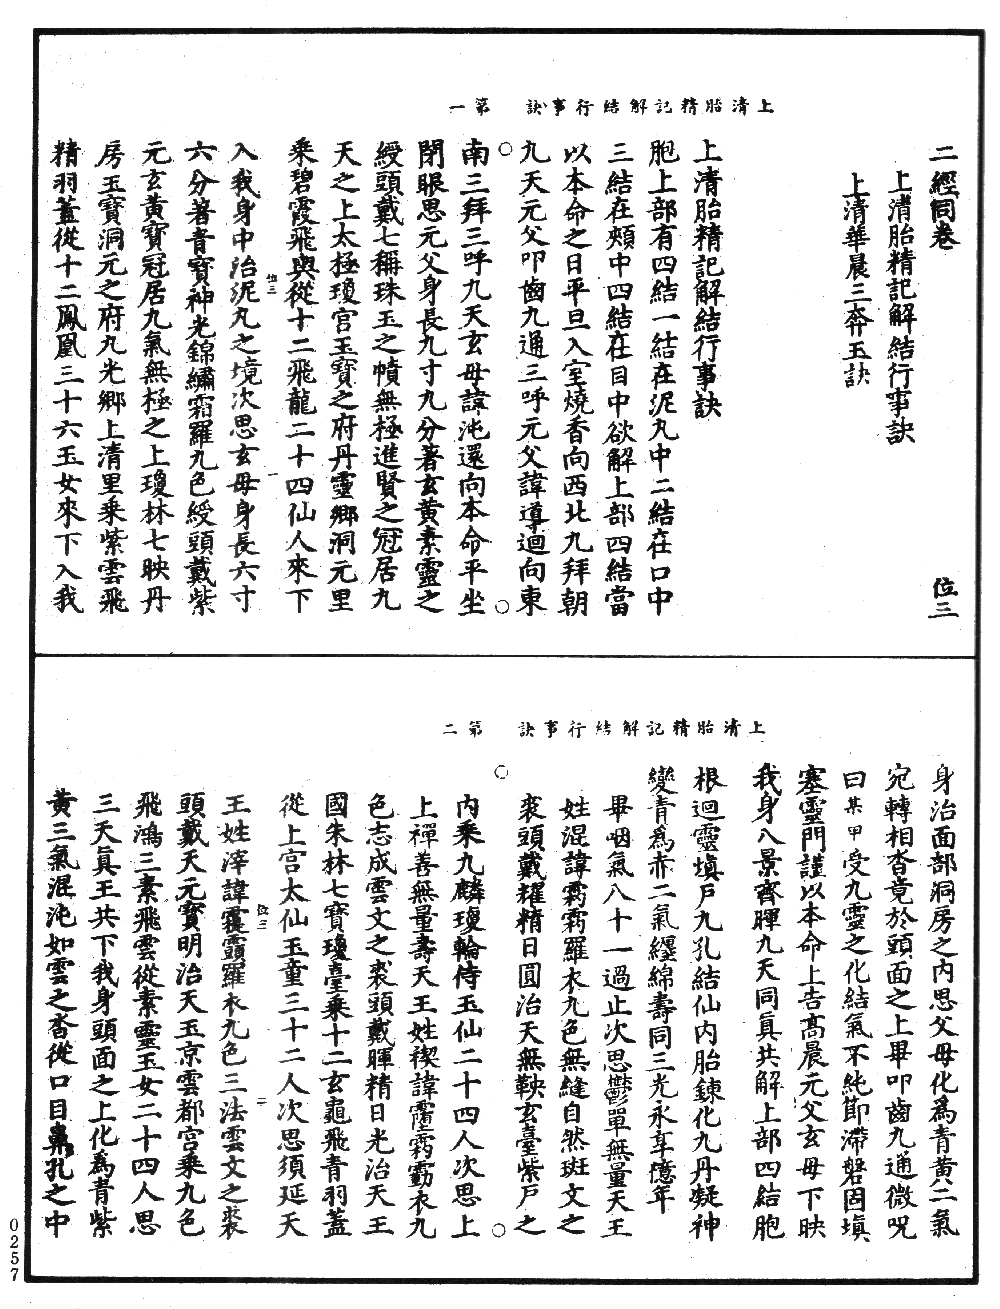 上清胎精記解結行事訣　第一
二經同卷　位三
上清胎精記解結行事訣
上清華晨三奔玉訣
上清胎精記解結行事訣
胞上部有四結一結在泥丸中二結在口中
三結在頰中四結在目中欲解上部四結當
以本命之日平旦入室燒香向西北九拜朝
九天元父叩齒九通三呼元父諱導迴向東
南三拜三呼九天玄母諱沌還向本命平坐
閉眼思元父身長九寸九分著玄黃素靈之
綬頭戴七稱珠玉之幘無極進賢之冠居九
天之上太極瓊宮玉寶之府丹靈鄉洞元里
乘碧霞飛輿從十二飛龍二十四仙人來下
位三　一
入我身中治泥丸之境次思玄母身長六寸
六分著青寶神光錦繡霜羅九色綬頭戴紫
元玄黃寶冠居九氣無極之上瓊林七映丹
房玉寶洞元之府九光鄉上清里乘紫雲飛
精羽蓋從十二鳳凰三十六玉女來下入我
上清胎精記解結行事訣　第二
身治面部洞房之內思父母化為青黃二氣
宛轉相沓竟於頭面之上畢叩齒九通微呪
曰某甲受九靈之化結氣不純節滯盤固填
塞靈門謹以本命上告高晨元父玄母下映
我身八景齊暉九天同真共解上部四結胞
根迴靈填戶九孔結仙內胎鍊化九丹凝神
變青為赤二氣纏綿壽同三光永享億年
畢咽氣八十一過止次思鬱單無量天王
姓混諱霐霐羅衣九色無縫自然斑文之
裘頭戴耀精日圓治天無鞅玄臺紫戶之
內乘九麟瓊輪侍玉仙二十四人次思上
上禪善無量壽天王姓禊諱霐衣九
色志成雲文之裘頭戴暉精日光治天王
國朱林七寶瓊臺乘十二玄龜飛青羽蓋
從上宮太仙玉童三十二人次思須延天
位三　二
王姓滓諱羅衣九色三法雲文之裘
頭戴天元寶明治天玉京雲都宮乘九色
飛鴻三素飛雲從素靈玉女二十四人思
三天真王共下我身頭面之上化為青紫
黃三氣混沌如雲之沓從口目鼻孔之中
0257